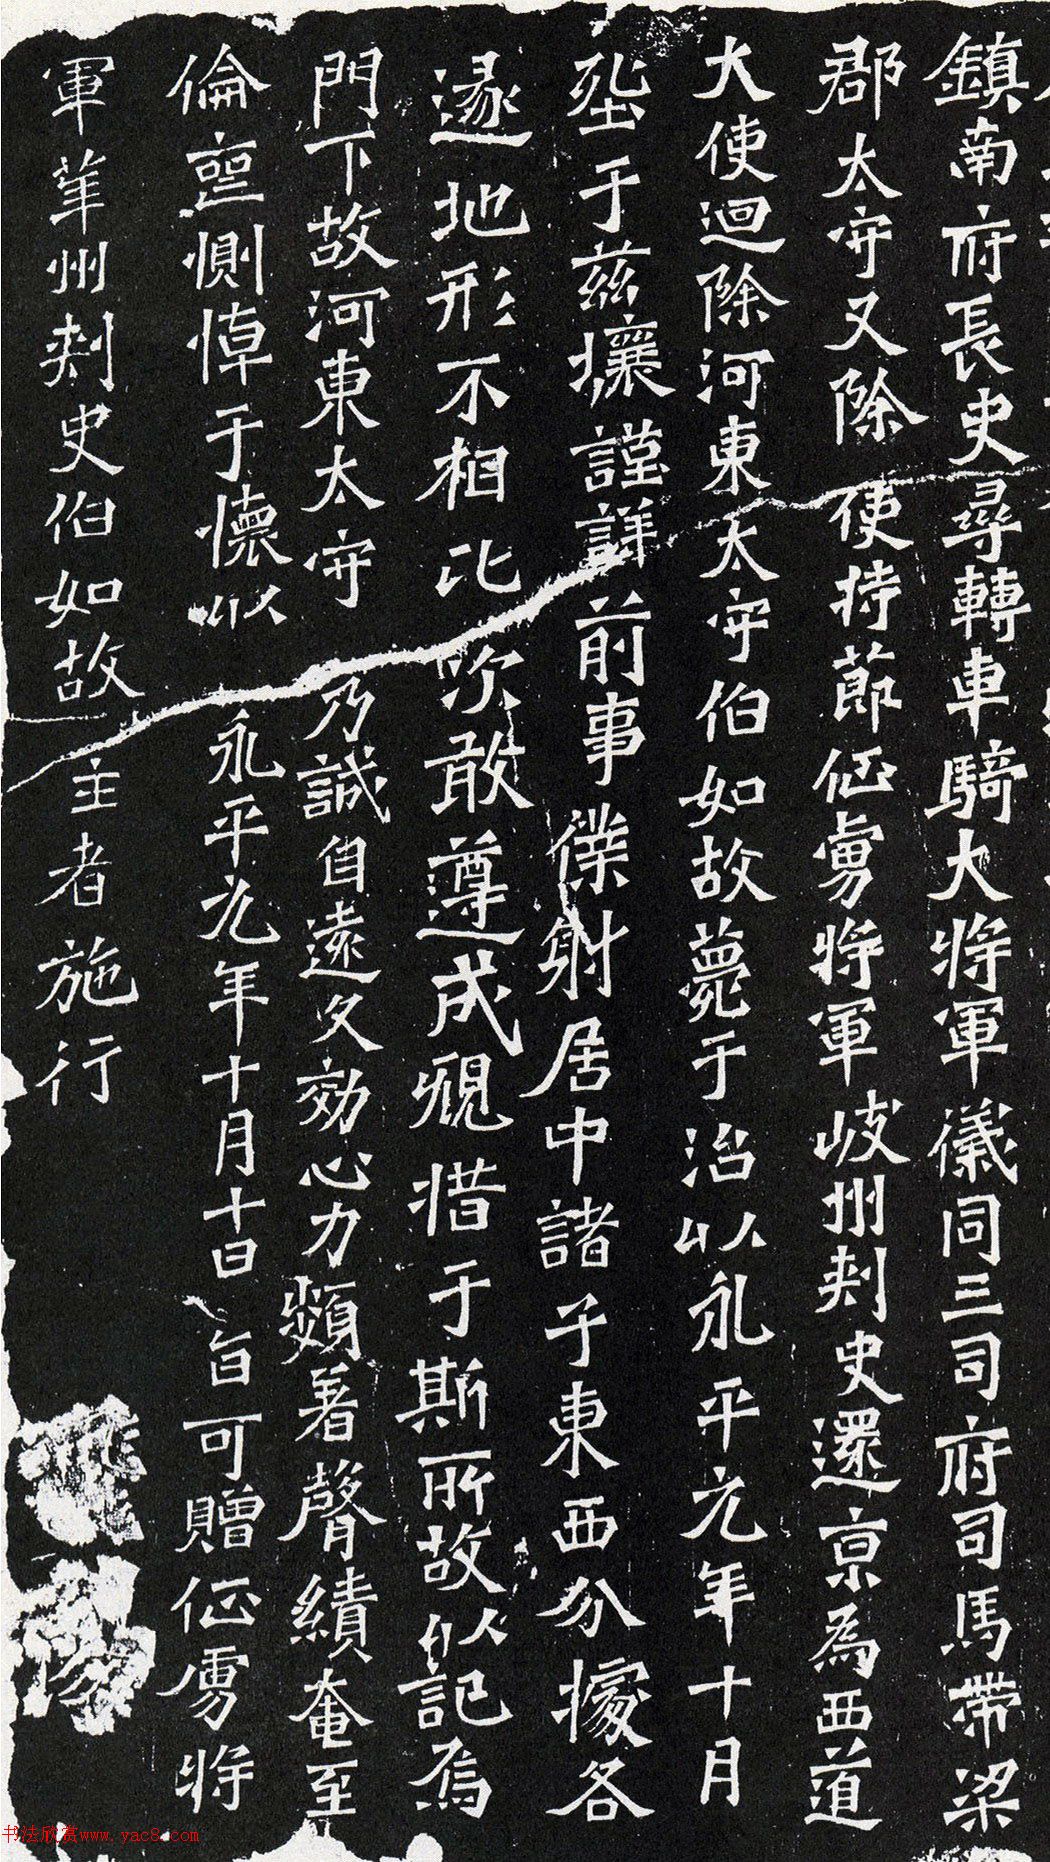 鎮南府長史尋轉車騎大将軍儀同三司府司馬帶梁
郡太守又除使持莭征虜将軍岐州刾史還京為西道
大使迴除河東太守伯如故薨于治以永平元年十月
塟于茲壤謹詳前事僕射居中諸子東西分據各
遂地形不相比次敢尊成䂓措于斯所故以記焉
門下故河東太守乃誠自遠久効心力頻著聲績奄至
倫壐惻悼于懷以永平元年十月十日旨可贈征虜将
軍華州刾史伯如故主者施行
书法欣赏www.yac8.com